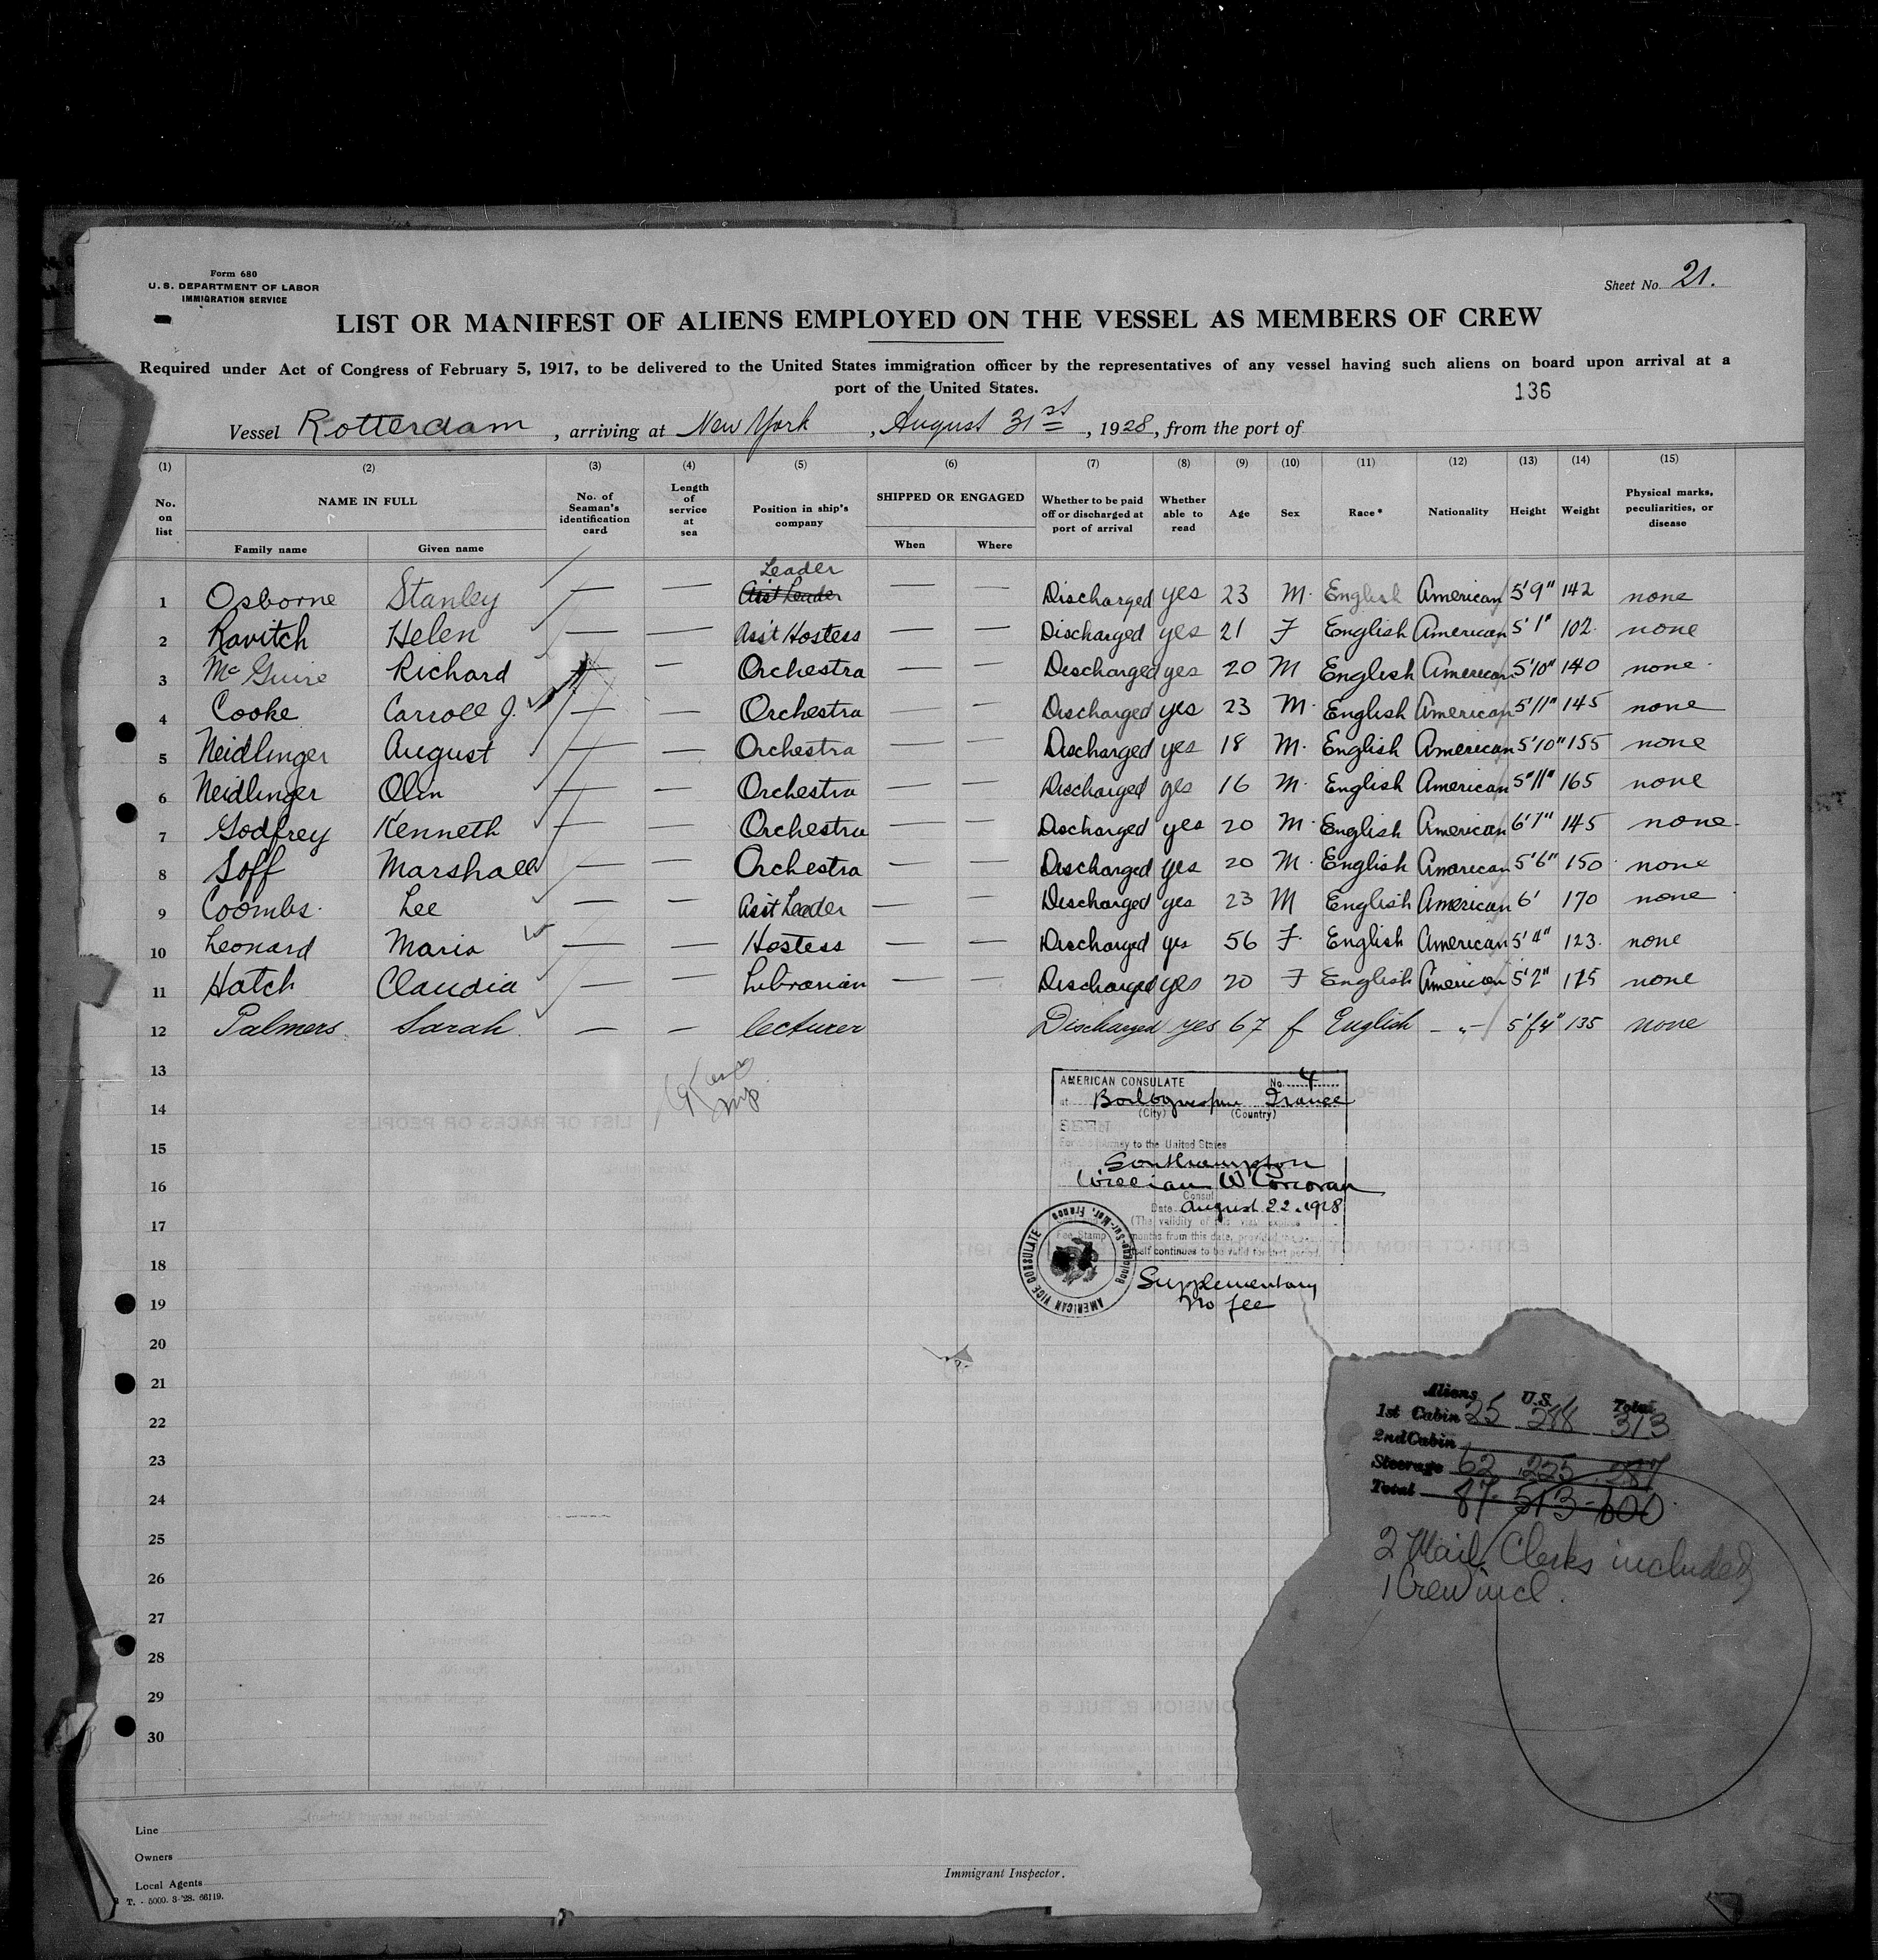 Form 680
U. S. DEPARTMENT OF LABOR
IMMIGRATION SERVICE
Sheet No. 21.
LIST OR MANIFEST OF ALIENS EMPLOYED ON THE VESSEL AS MEMBERS OF CREW
Required under Act of Congress of February 5, 1917, to be delivered to the United States immigration officer by the representatives of any vessel having such aliens on board upon arrival at a
port of the United States.
136
Vessel Rotterdam, arriving at New York, August 31st, 1928, from the port of
(1) (2) (3) (4) (5) (6) (7) (8) (9) (10) (11) (12) (13) (14) (15)
No. on list NAME IN FULL No. of Seaman's identification card Length of service at sea Position in ship's company SHIPPED OR ENGAGED Whether to be paid off or discharged at port of arrival Whether able to read Age Sex Race* Nationality Height Weight Physical marks, peculiarities, or disease
Family name Given name When Where
Leader
1 Osborne Stanley — — Ass't Leader — — Discharged yes 23 M. English American 5'9" 142 none
2 Ravitch Helen — — Ass't Hostess — — Discharged yes 21 F English American 5'1" 102. none
3 McGuire Richard — — Orchestra — — Discharged yes 20 M English American 5'10" 140 none
4 Cooke Carroll J. — — Orchestra — — Discharged yes 23 M. English American 5'11" 145 none
5 Neidlinger August — — Orchestra — — Discharged yes 18 M. English American 5'10" 155 none
6 Neidlinger Olin — — Orchestra — — Discharged yes 16 M. English American 5'11" 165 none
7 Godfrey Kenneth — — Orchestra — — Discharged yes 20 M. English American 6'1" 145 none
8 Soff Marshall — — Orchestra — — Discharged yes 20 M. English American 5'6" 150 none
9 Coombs. Lee — — Ass't Leader — — Discharged yes 23 M English American 6' 170 none
10 Leonard Maria — — Hostess — — Discharged yes 56 F. English American 5'4" 123. none
11 Hatch Claudia — — Librarian — — Discharged yes 20 F English American 5'2" 125 none
12 Palmers Sarah — — lecturer Discharged yes 67 f English -"- 5'4" 135 none
13
14
15
16
17
18
19
20
21
22
23
24
25
26
27
28
29
30
AMERICAN CONSULATE No. 4
at France
(City) (Country)
For the journey to the United States
Southampton
William W Corcoran
Consul
Date August 22.1928
(The validity of this visa expires
months from this date, provided
itself continues to be valid for that period.
Fee Stamp
AMERICAN VICE CONSULATE Boulogne-sur-Mer, France
Supplementary
no fee
Aliens U.S. Total
1st Cabin 25 288 313
2nd Cabin
Steerage 62 225 287
Total 87 - 513 - 600
2 Mail Clerks included
1 Crew incl.
Line
Owners
Local Agents
T. - 5000. 3-'28. 66119.
Immigrant Inspector.